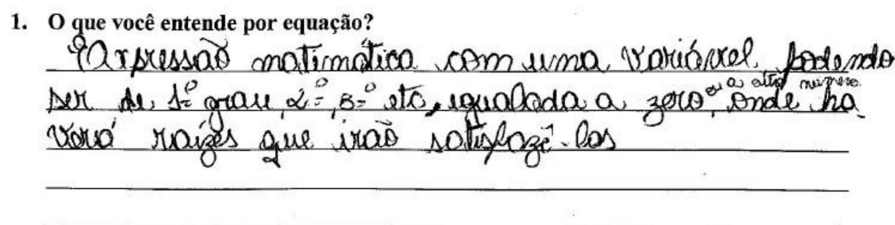 1. O que você entende por equação?
Expressão matimática com uma variável podendo
ser de 1º grau, 2º, 3º etc, igualada a zero ou a outro número, onde ha
verá raízes que irão satisfazê-las